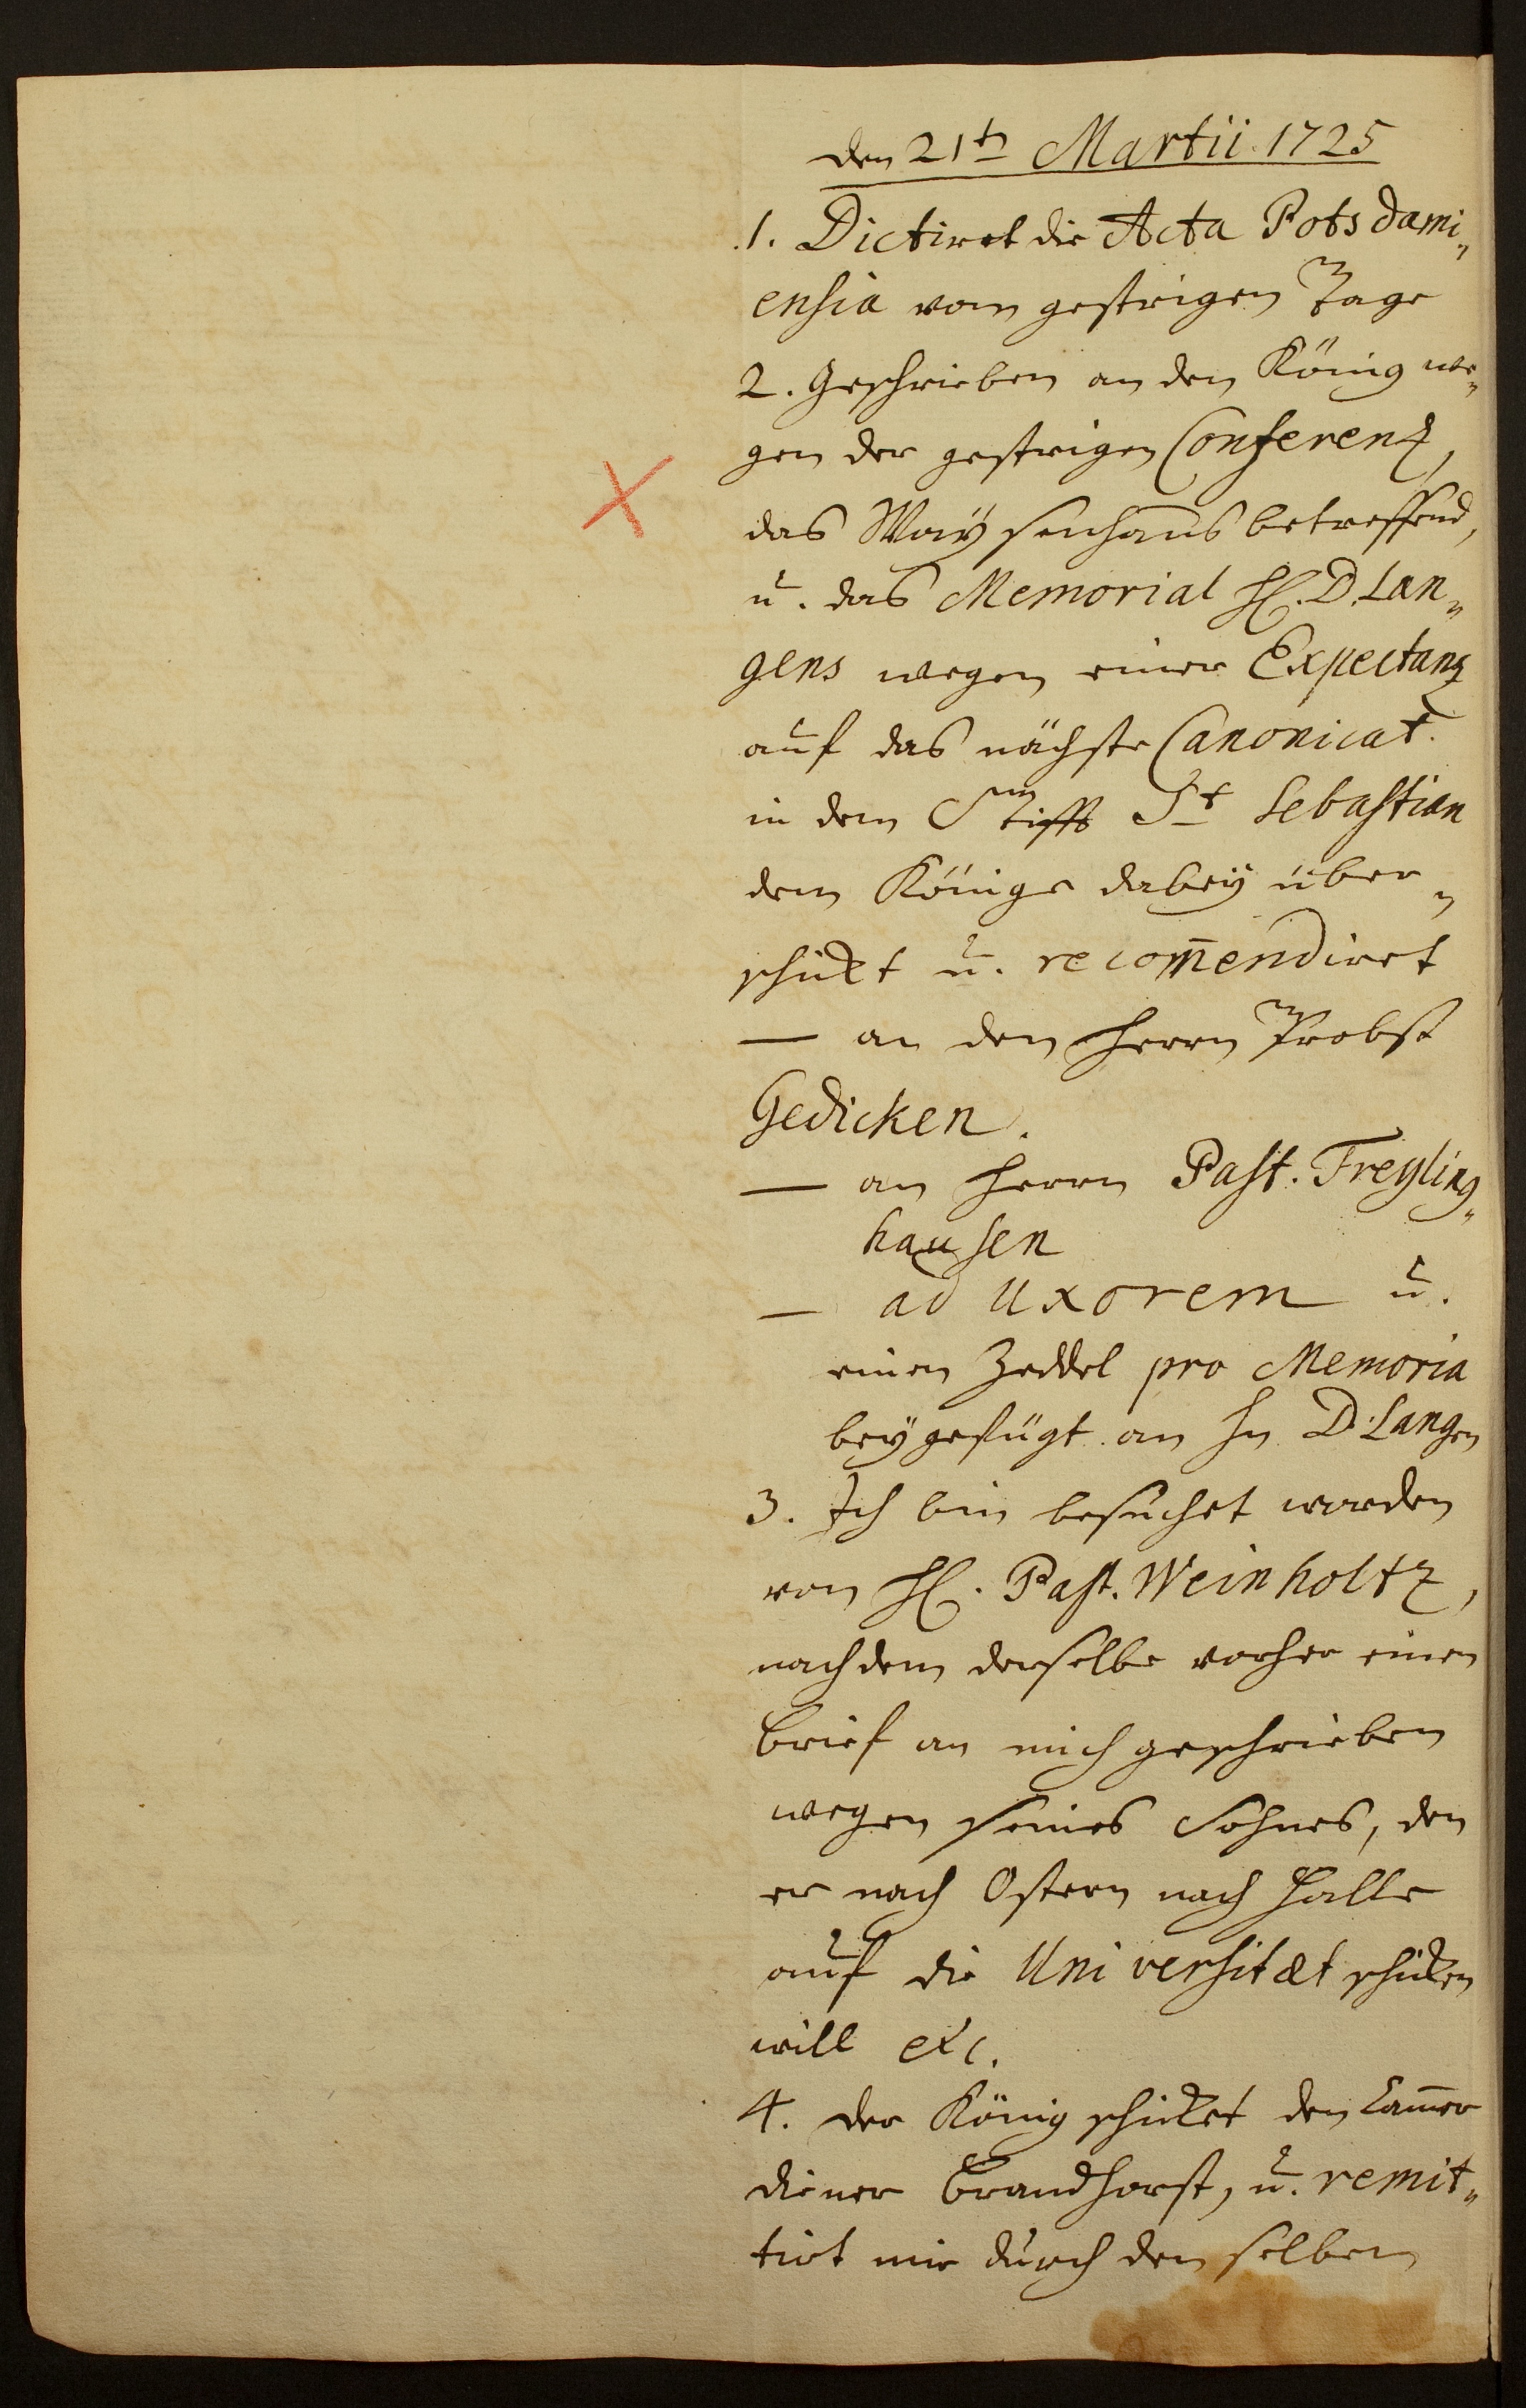 den 21t̲n Martii. 1725
1. Dictiret die Acta Potsdami„
ensia vom gestrigen Tage
2. Geschrieben an den König we„
gen der gestrigen Conferentz,
das Waÿsenhaus betreffend,
u. das Memorial H. D. Lan„
gens wegen einer Expectantz
auf das nächste Canonicat.
in dem Stifft St Sebastian
dem Könige dabeÿ über„
schickt u. recom̄endiret
— an den Herrn Probst
Gedicken.
— an Herrn Past. Freyling„
hausen
— ad Uxorem u.
einen Zeddel pro Memoria
beÿgefügt an Hn D. Langen
3. Ich bin besuchet worden
von H. Past. Weinholtz,
nachdem derselbe vorher einen
Brief an mich geschrieben
wegen seines Sohnes, den
er nach Ostern nach Halle
auf die Universitæt schicken
will etc.
4. der König schicket den Cam̄er
diener Brandhorst, u. remit„
tirt mir durch den selben